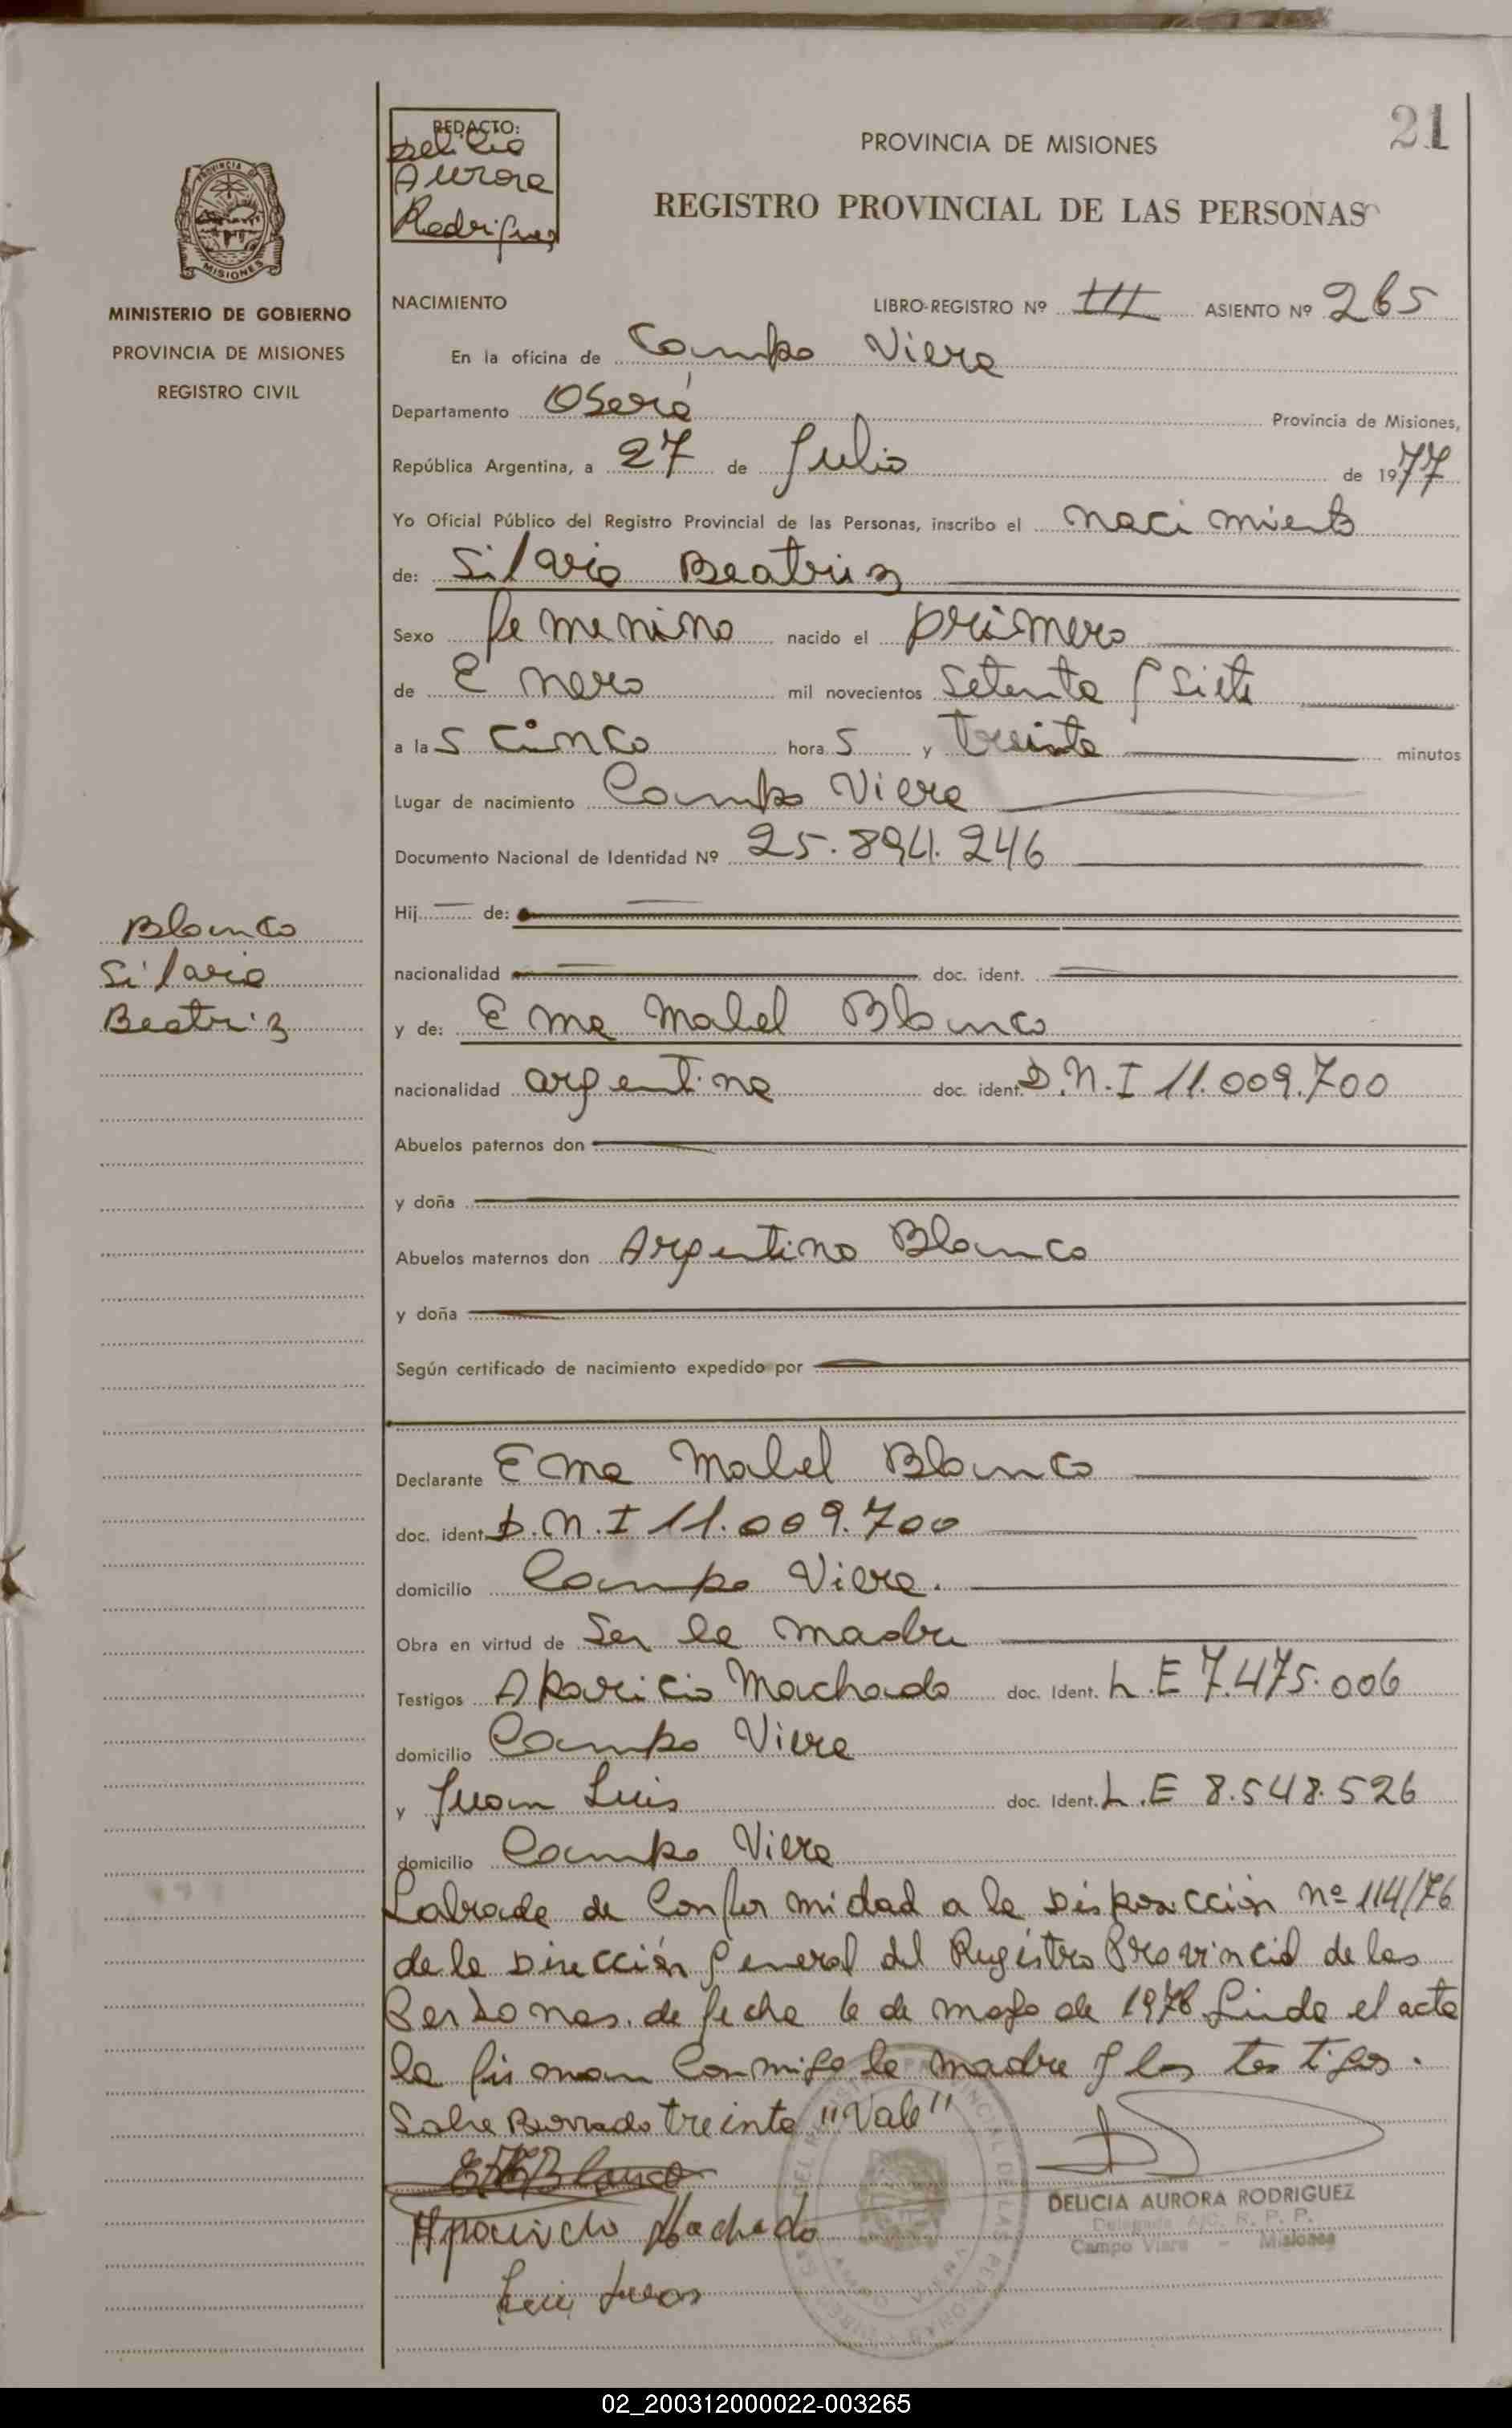 21
REDACTO:
Delicia
Aurora
Rodriguez
PROVINCIA DE MISIONES
REGISTRO PROVINCIAL DE LAS PERSONAS
PROVINCIA DE
MISIONES
MINISTERIO DE GOBIERNO
PROVINCIA DE MISIONES
REGISTRO CIVIL
NACIMIENTO LIBRO-REGISTRO Nº III ASIENTO Nº 265
En la oficina de Campo Viera
Departamento Oberá Provincia de Misiones,
República Argentina, a 27 de Julio de 1977
Yo Oficial Público del Registro Provincial de las Personas, inscribo el nacimiento
de: Silvia Beatriz
Sexo femenino nacido el primero
de Enero mil novecientos setenta y siete
a las cinco horas y treinta minutos
Lugar de nacimiento Campo Viera
Documento Nacional de Identidad Nº 25.894.246
Hij de:
Blanco
Silvia
Beatriz
nacionalidad doc. ident.
y de: Ema Mabel Blanco
nacionalidad argentina doc. ident. D.N.I 11.009.700
Abuelos paternos don
y doña
Abuelos maternos don Argentino Blanco
y doña
Según certificado de nacimiento expedido por
Declarante Ema Mabel Blanco
doc. ident. D.N.I 11.009.700
domicilio Campo Viera.
Obra en virtud de Ser la madre
Testigos Aparicio Machado doc. Ident. L.E 7.475.006
domicilio Campo Viera
y Juan Luis doc. Ident. L.E 8.548.526
domicilio Campo Viera
Labrada de Conformidad a la Disposicción nº 114/76
de la Dirección general del Registro Provincial de las
Personas. de fecha 6 de mayo de 1976 Leida el acta
la firman Conmigo la madre y los testigos.
Sobre Borrado treinta "Vale"
E M Blanco
Aparicio Machado
DELICIA AURORA RODRIGUEZ
Delegada A/C. R. P. P.
Campo Viera - Misiones
02_200312000022-003265